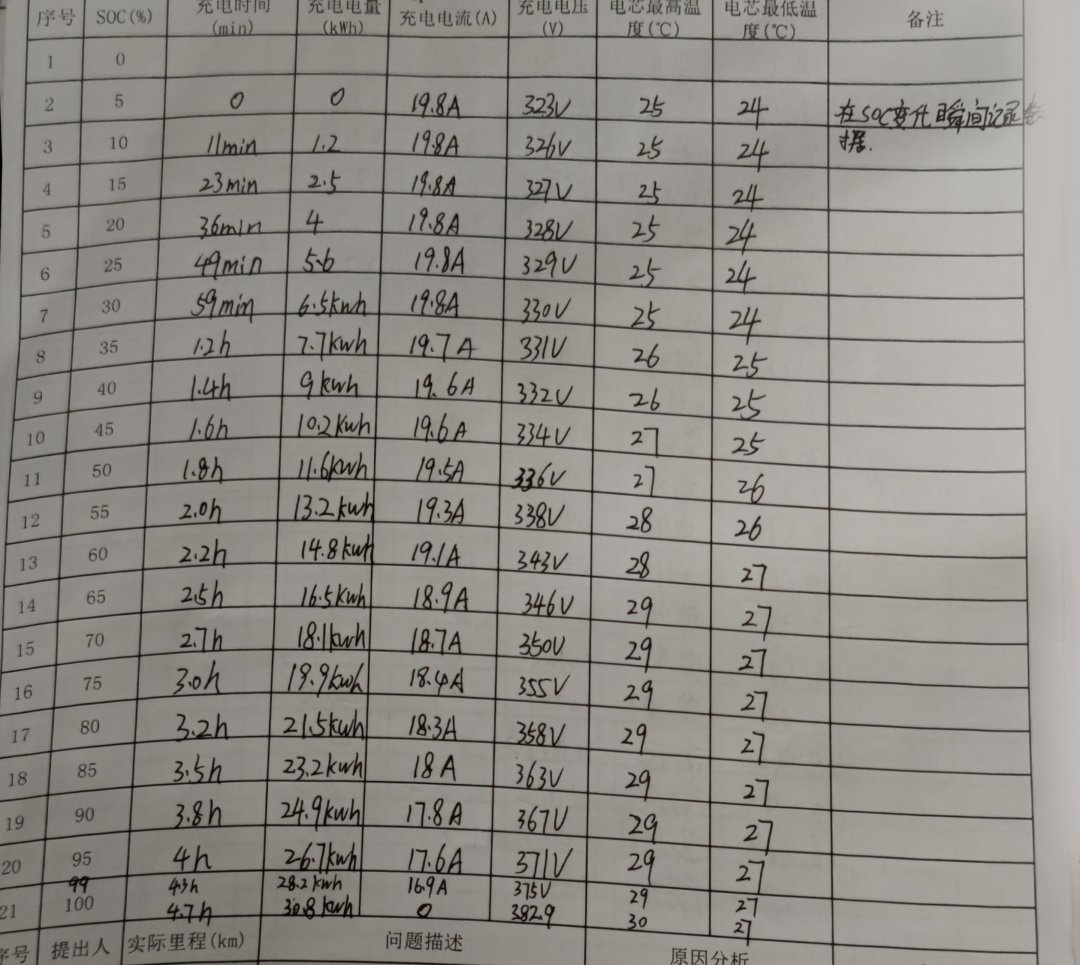 序号 SOC(%) 充电时间(min) 充电电量(kWh) 充电电流(A) 充电电压(V) 电芯最高温度(℃) 电芯最低温度(℃) 备注
1 0
2 5 0 0 19.8A 323V 25 24 在SOC变化瞬间记录数据.
3 10 11min 1.2 19.8A 326V 25 24
4 15 23min 2.5 19.8A 327V 25 24
5 20 36min 4 19.8A 328V 25 24
6 25 49min 5.6 19.8A 329V 25 24
7 30 59min 6.5kwh 19.8A 330V 25 24
8 35 1.2h 7.7kwh 19.7A 331V 26 25
9 40 1.4h 9kwh 19.6A 332V 26 25
10 45 1.6h 10.2kwh 19.6A 334V 27 25
11 50 1.8h 11.6kwh 19.5A 336V 27 26
12 55 2.0h 13.2kwh 19.3A 338V 28 26
13 60 2.2h 14.8kwh 19.1A 343V 28 27
14 65 2.5h 16.5kwh 18.9A 346V 29 27
15 70 2.7h 18.1kwh 18.7A 350V 29 27
16 75 3.0h 19.9kwh 18.4A 355V 29 27
17 80 3.2h 21.5kwh 18.3A 358V 29 27
18 85 3.5h 23.2kwh 18A 363V 29 27
19 90 3.8h 24.9kwh 17.8A 367V 29 27
20 95 4h 26.7kwh 17.6A 371V 29 27
99 4.3h 28.2kwh 16.9A 375V 29 27
21 100 4.7h 30.8kwh 0 382.9 30 27
序号 提出人 实际里程(km) 问题描述 原因分析